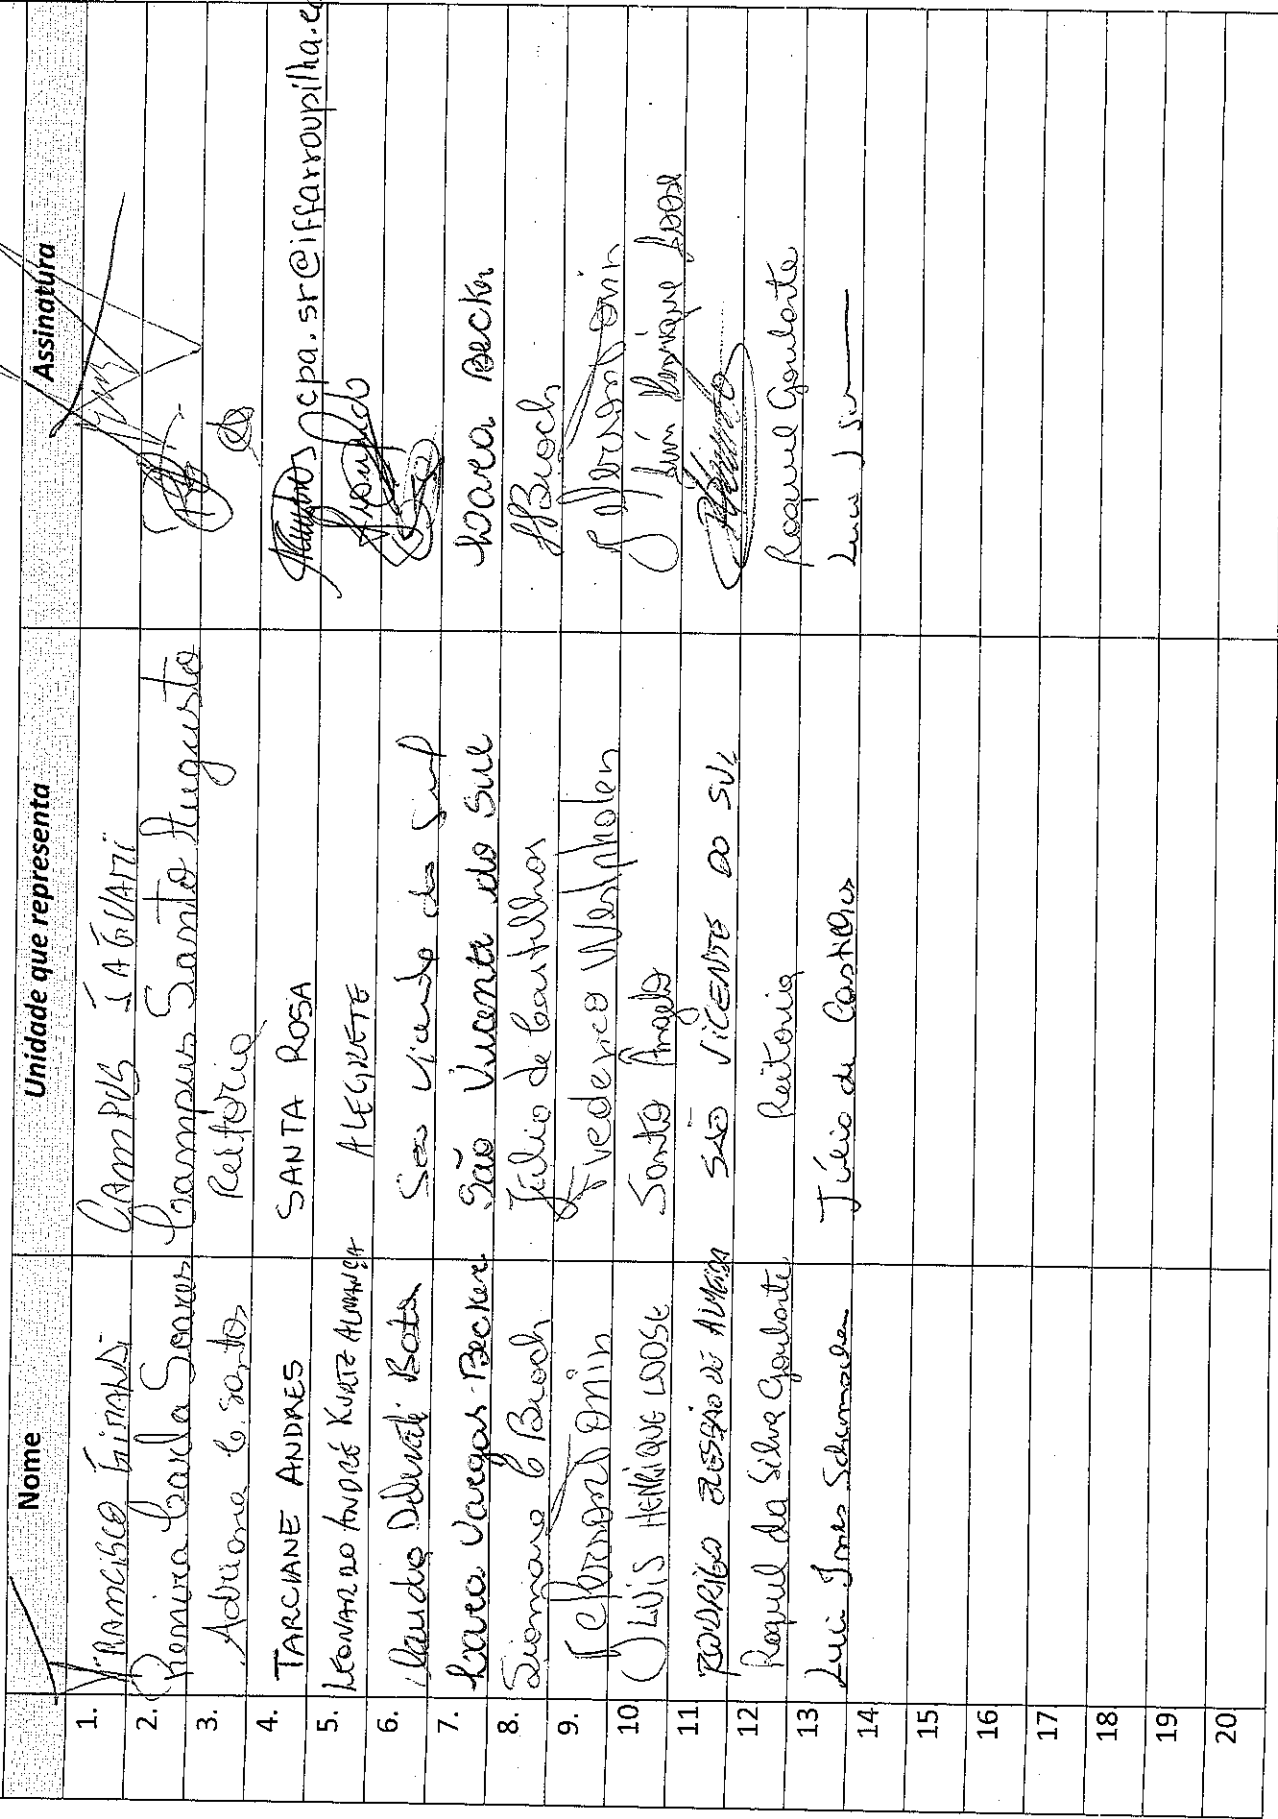 Nome Unidade que representa Assinatura
1. Francisco CAMPUS JAGUARI
2. Carla Soares Campus Santo Augusto
3. Adriana C. Santos Reitoria
4. TARCIANE ANDRES SANTA ROSA cpa.sr@iffarroupilha.e
5. LEONARDO ANDRÉ KURTZ ALMANÇA ALEGRETE Leonardo
6. São Vicente do Sul
7. Laura Vargas Becker São Vicente do Sul Laura Becker
8. Siomara C Broch Júlio de Castilhos SBroch
9. Frederico Westphalen
10 LUIS HENRIQUE LOOSE Santo Angelo Luis Henrique Loose
11 RODRIGO DE ALMEIDA SÃO VICENTE DO SUL
12 Raquel da Silva Goularte Reitoria Raquel Goularte
13 Luci Ines Schumacher Júlio de Castilhos
14.
15.
16.
17.
18.
19.
20.